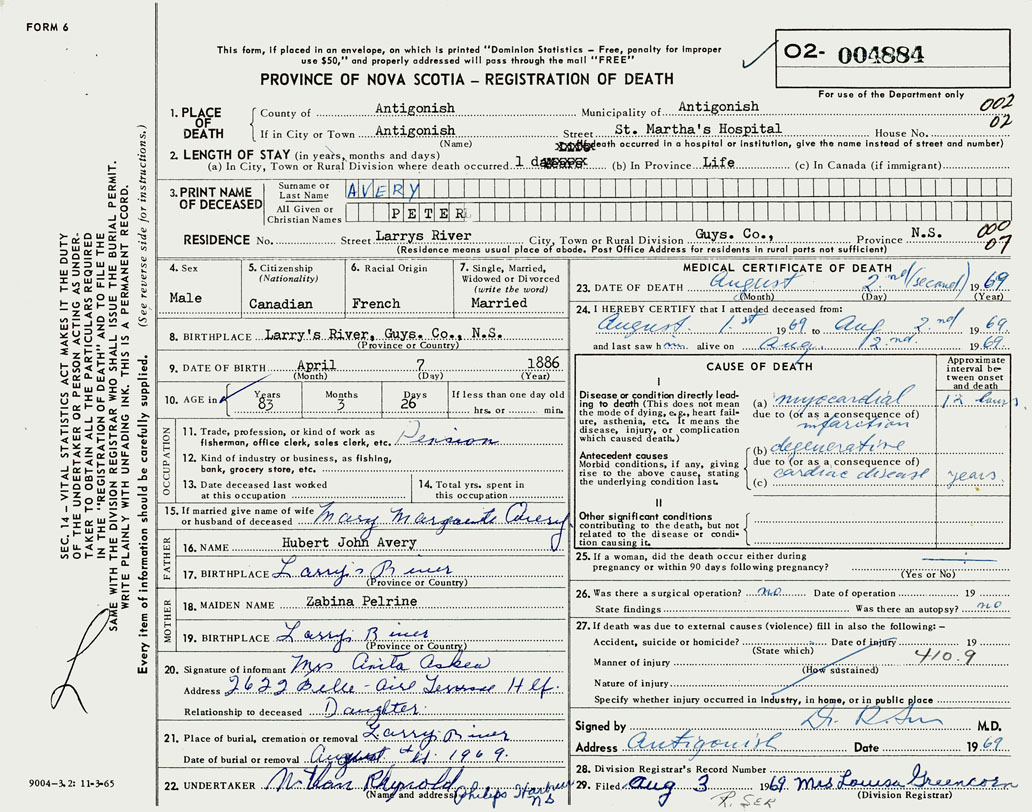 FORM 6
This form, if placed in an envelope, on which is printed "Dominion Statistics – Free, penalty for improper
use $50," and properly addressed will pass through the mail "FREE"
PROVINCE OF NOVA SCOTIA – REGISTRATION OF DEATH
O2- 004884
For use of the Department only
SEC. 14 – VITAL STATISTICS ACT MAKES IT THE DUTY
OF THE UNDERTAKER OR PERSON ACTING AS UNDER-
TAKER TO OBTAIN ALL THE PARTICULARS REQUIRED
IN THE "REGISTRATION OF DEATH" AND TO FILE THE
SAME WITH THE DIVISION REGISTRAR WHO SHALL ISSUE THE BURIAL PERMIT.
WRITE PLAINLY WITH UNFADING INK. THIS IS A PERMANENT RECORD.
Every item of information should be carefully supplied. (See reverse side for instructions.)
1. PLACE OF DEATH
County of Antigonish Municipality of Antigonish 002
If in City or Town Antigonish Street St. Martha's Hospital House No. 02
(Name) (If death occurred in a hospital or institution, give the name instead of street and number)
2. LENGTH OF STAY (in years, months and days)
(a) In City, Town or Rural Division where death occurred 1 day (b) In Province Life (c) In Canada (if immigrant)
3. PRINT NAME OF DECEASED
Surname or Last Name AVERY
All Given or Christian Names PETER
RESIDENCE No. Street Larrys River City, Town or Rural Division Guys. Co., Province N.S. 000 07
(Residence means usual place of abode. Post Office Address for residents in rural parts not sufficient)
4. Sex
Male
5. Citizenship (Nationality)
Canadian
6. Racial Origin
French
7. Single, Married, Widowed or Divorced (write the word)
Married
8. BIRTHPLACE Larry's River, Guys. Co., N.S.
(Province or Country)
9. DATE OF BIRTH April 7 1886
(Month) (Day) (Year)
10. AGE in Years 83 Months 3 Days 26 If less than one day old hrs. or min.
OCCUPATION
11. Trade, profession, or kind of work as
fisherman, office clerk, sales clerk, etc. Pension
12. Kind of industry or business, as fishing,
bank, grocery store, etc.
13. Date deceased last worked at this occupation
14. Total yrs. spent in this occupation
15. If married give name of wife
or husband of deceased Mary Marguerite Avery
FATHER
16. NAME Hubert John Avery
17. BIRTHPLACE Larry's River
(Province or Country)
MOTHER
18. MAIDEN NAME Zabina Pelrine
19. BIRTHPLACE Larry's River
(Province or Country)
20. Signature of informant Mrs Anita Askew
Address 2622 Belle-Aire Terrace Hlf.
Relationship to deceased Daughter
21. Place of burial, cremation or removal Larry's River
Date of burial or removal August 1969.
22. UNDERTAKER
(Name and address)
MEDICAL CERTIFICATE OF DEATH
23. DATE OF DEATH August 2nd (second) 1969
(Month) (Day) (Year)
24. I HEREBY CERTIFY that I attended deceased from:
August 1st 1969 to Aug 2nd 1969.
and last saw him alive on Aug. 2nd 1969.
CAUSE OF DEATH
Approximate interval between onset and death
I
Disease or condition directly lead-
ing to death (This does not mean
the mode of dying, e.g., heart fail-
ure, asthenia, etc. It means the
disease, injury, or complication
which caused death.)
(a) myocardial 12 hours
due to (or as a consequence of)
infarction
Antecedent causes
Morbid conditions, if any, giving
rise to the above cause, stating
the underlying condition last.
(b) degenerative
due to (or as a consequence of)
cardiac disease years.
(c)
II
Other significant conditions
contributing to the death, but not
related to the disease or condi-
tion causing it.
25. If a woman, did the death occur either during
pregnancy or within 90 days following pregnancy?
(Yes or No)
26. Was there a surgical operation? no Date of operation 19
State findings Was there an autopsy? no
27. If death was due to external causes (violence) fill in also the following:–
Accident, suicide or homicide? Date of injury 19
(State which)
Manner of injury 410.9
(How sustained)
Nature of injury
Specify whether injury occurred in Industry, in home, or in public place
Signed by M.D.
Address Antigonish Date 1969
28. Division Registrar's Record Number
29. Filed Aug 3 1969. Mrs Louisa Greencorn
(Division Registrar)
9004–3.2: 11-3-65